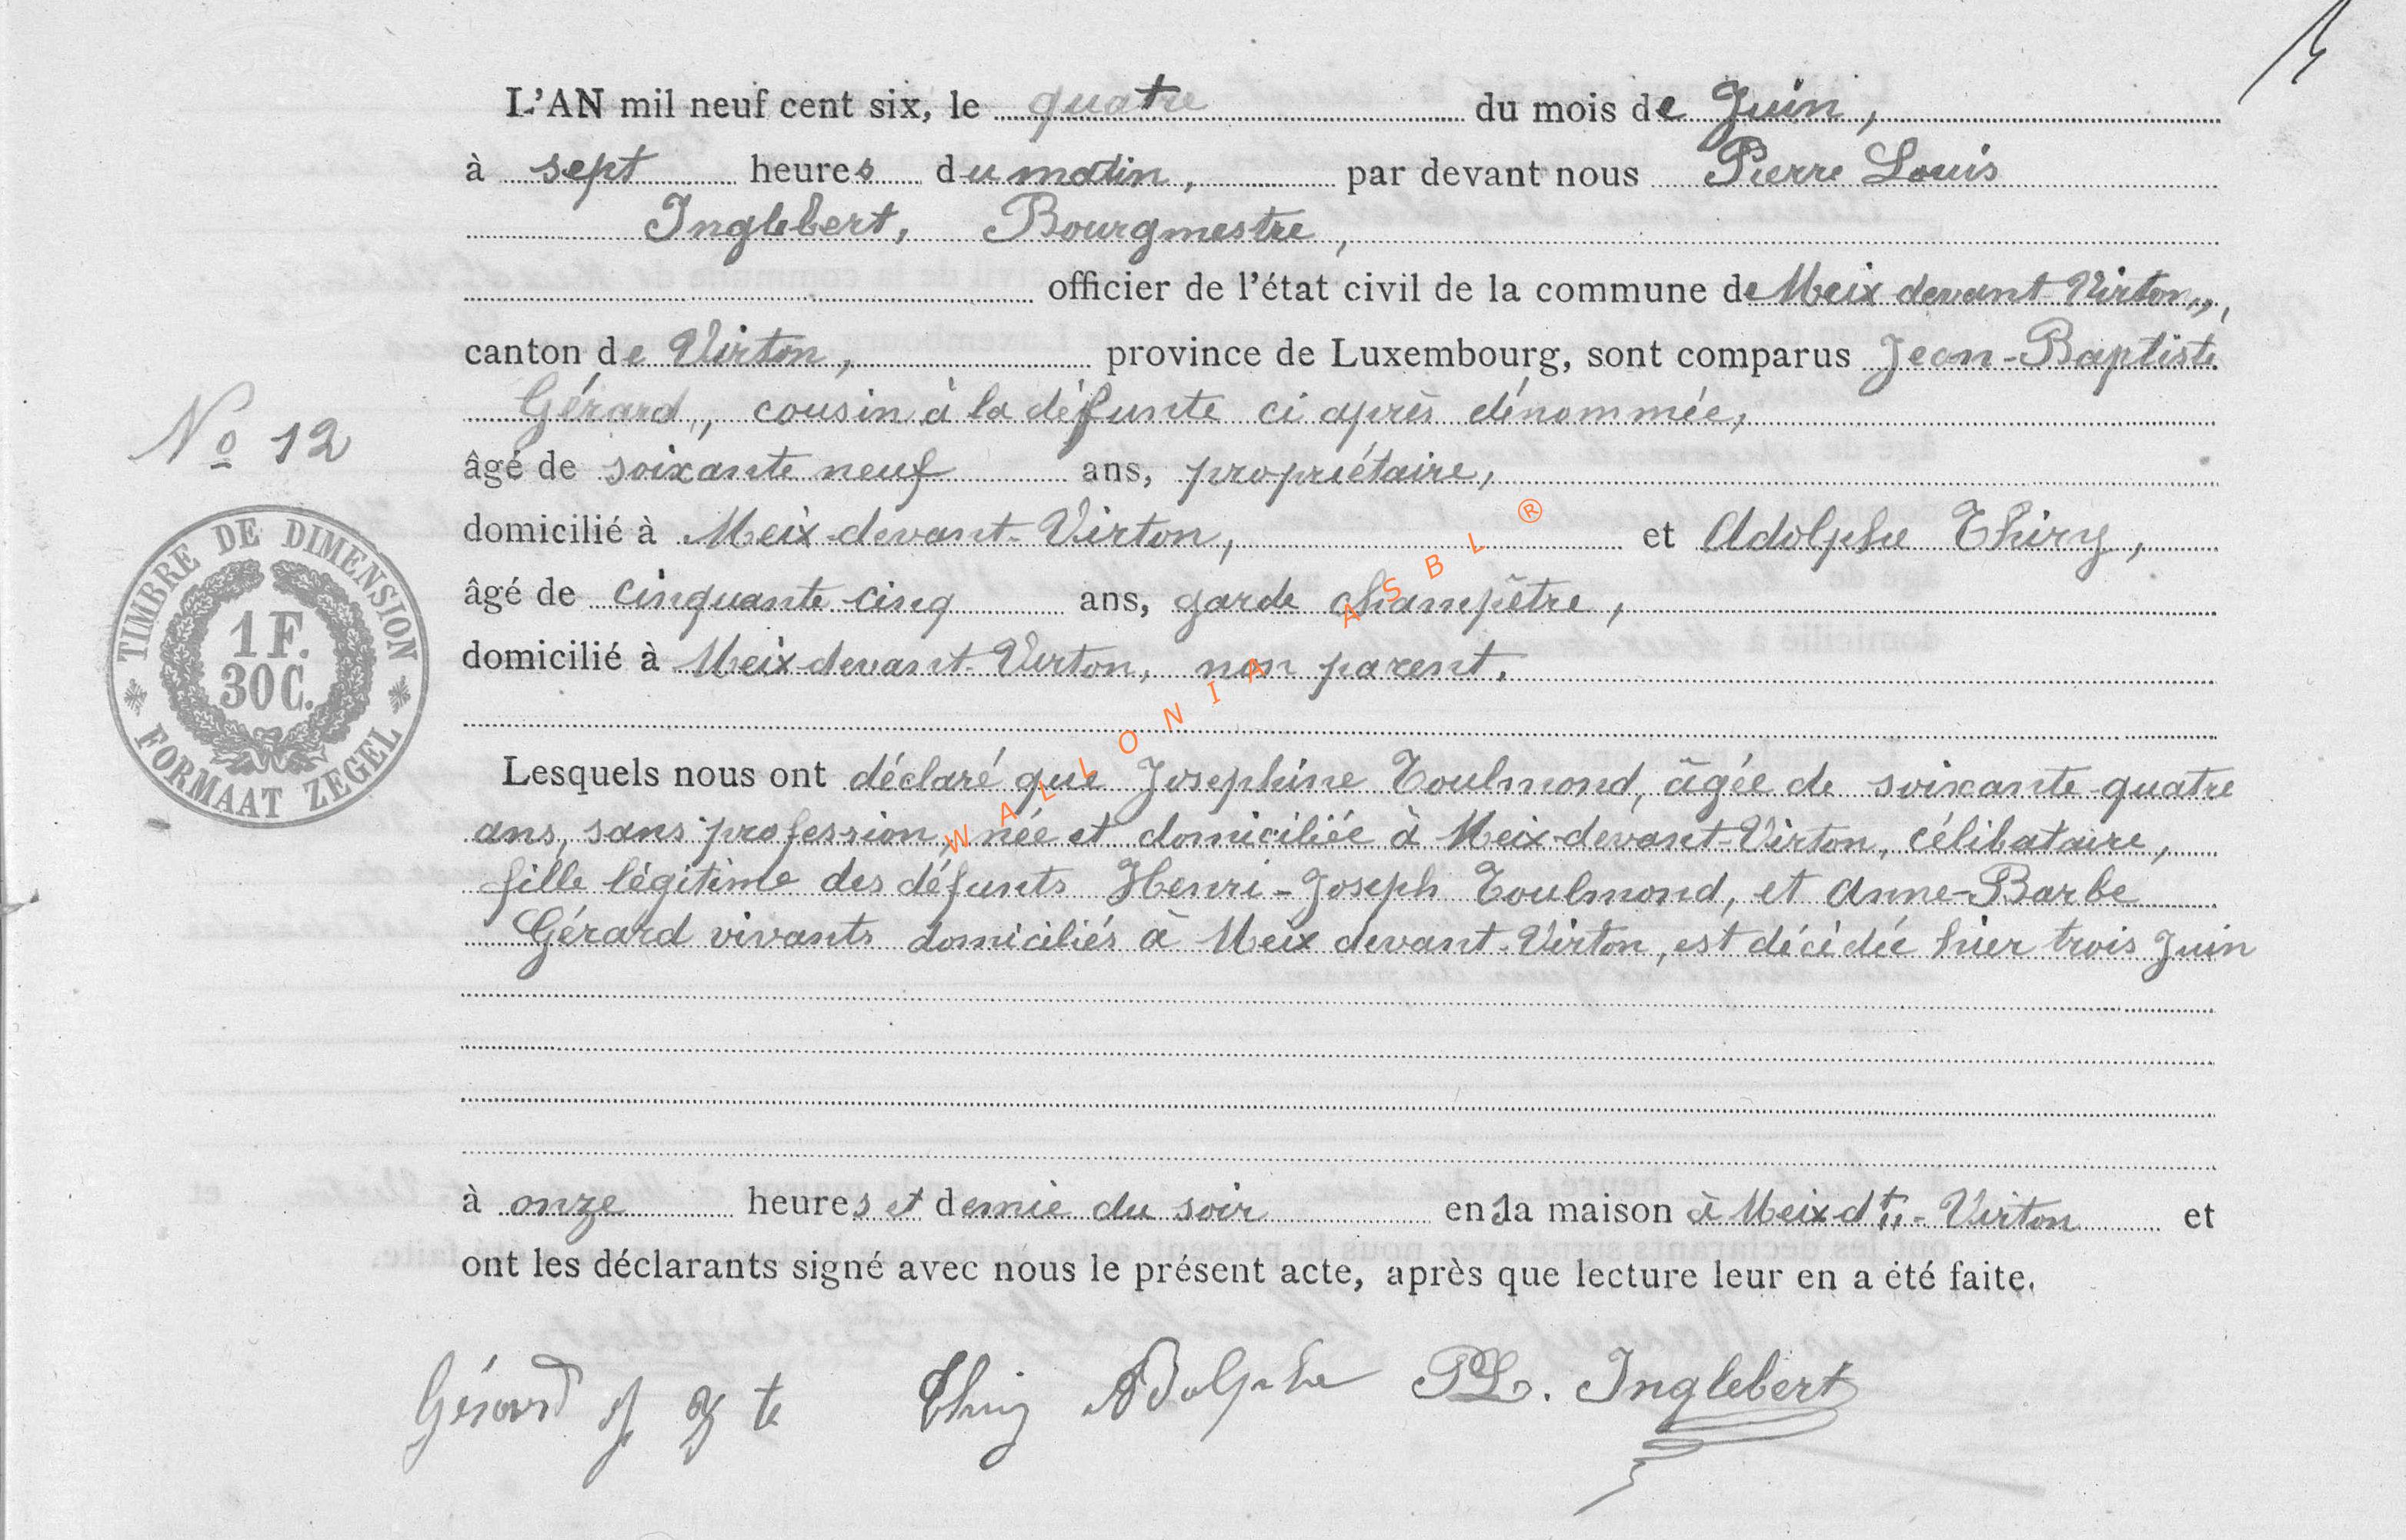 L'AN mil neuf cent six, le quatre du mois de Juin,
à sept heures du matin, par devant nous Pierre Louis
Inglebert, Bourgmestre,
officier de l'état civil de la commune de Meix devant Virton,,
canton de Virton, province de Luxembourg, sont comparus Jean-Baptiste
Gérard,, cousin à la défunte ci après dénommée,
No 12
âgé de soixante neuf ans, propriétaire,
domicilié à Meix-devant-Virton, et Adolphe Thiry,
âgé de cinquante-cinq ans, garde champêtre,
domicilié à Meix-devant-Virton, non parent.
TIMBRE DE DIMENSION
1 F.
30 C.
FORMAAT ZEGEL
WALLONIA ASBL ®
Lesquels nous ont déclaré que Josephine Toulmond, âgée de soixante-quatre
ans, sans profession, née et domiciliée à Meix-devant-Virton, célibataire,
fille légitime des défunts Henri-Joseph Toulmond, et Anne-Barbe
Gérard vivants domiciliés à Meix devant-Virton, est décédée hier trois Juin
à onze heures et demie du soir en sa maison à Meix dt-Virton et
ont les déclarants signé avec nous le présent acte, après que lecture leur en a été faite.
Gérard J B te Thiry Adolphe PL. Inglebert